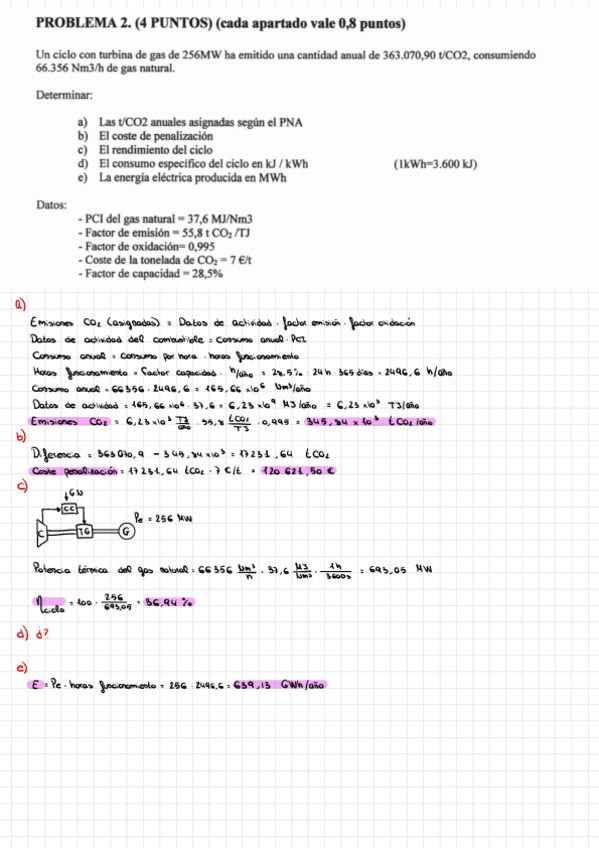 PROBLEMA 2. (4 PUNTOS) (cada apartado vale 0,8 puntos)
Un ciclo con turbina de gas de 256MW ha emitido una cantidad anual de 363.070,90 t/CO2, consumiendo
66.356 Nm3/h de gas natural.
Determinar:
a) Las t/CO2 anuales asignadas según el PNA
b) El coste de penalización
c) El rendimiento del ciclo
d) El consumo específico del ciclo en kJ / kWh (1kWh=3.600 kJ)
e) La energía eléctrica producida en MWh
Datos:
- PCI del gas natural = 37,6 MJ/Nm3
- Factor de emisión = 55,8 t CO2 /TJ
- Factor de oxidación= 0,995
- Coste de la tonelada de CO2 = 7 €/t
- Factor de capacidad = 28,5%
a)
Emisiones CO2 (asignadas) = Datos de actividad · factor emisión · factor oxidación
Datos de actividad del combustible = Consumo anual · PCI
Consumo anual = consumo por hora · horas funcionamiento
Horas funcionamiento = factor capacidad · h/año = 28,5% · 24h · 365 días = 2496,6 h/año
Consumo anual = 66356 · 2496,6 = 165,66 x10⁶ Nm³/año
Datos de actividad = 165,66 x10⁶ · 37,6 = 6,23 x10⁹ MJ/año = 6,23 x10³ TJ/año
Emisiones CO2 = 6,23 x10³ TJ/año · 55,8 tCO2/TJ · 0,995 = 345,84 x 10³ tCO2/año
b)
Diferencia = 363070,9 - 345,84 x10³ = 17231,64 tCO2
Coste penalización = 17231,64 tCO2 · 7 €/t = 120 621,50 €
c)
↓GN
CC
C
TG
G
Pe = 256 MW
Potencia térmica del gas natural = 66356 Nm³/h · 37,6 MJ/Nm³ · 1h/3600s = 693,05 MW
ηciclo = 100 · 256/693,05 = 36,94 %
d) ¿?
e)
E = Pe · horas funcionamiento = 256 · 2496,6 = 639,13 GWh/año